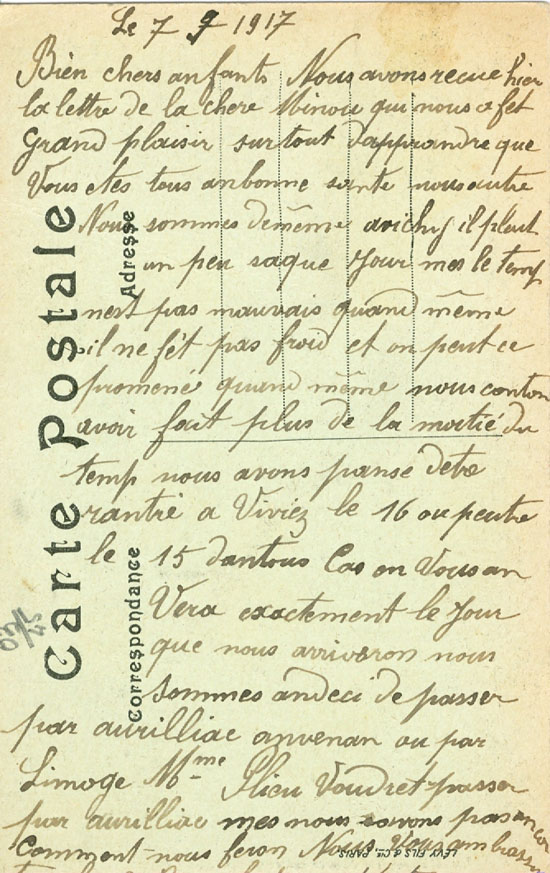 Le 7 9 1917
Bien chers anfants Nous avons recue hier
la lettre de la chere Minou qui nous a fet
Grand plaisir surtout dapprandre que
Vous etes tous anbonne sante nous autre
Nous sommes demême avichy il pleut
un peu saque Jour mes le temp
nest pas mauvais quand même
il ne fét pas froid et on peut ce
promené quand même nous conton
avoir fait plus de la moitié du
temp nous avons panse detre
rantré a Viviez le 16 ou peutre
le 15 dantous Cas on Vousan
Vera exactement le Jour
que nous arriveron nous
sommes andeci de passer
par aurilliac anvenan ou par
Limoge Mme Plieu Voudret passer
par aurilliac mes nous savons pas ancor
Comment nous feron Nous Vous ambrass
Carte Postale
Adresse
Correspondance
LÉVY FILS & Cie, PARIS